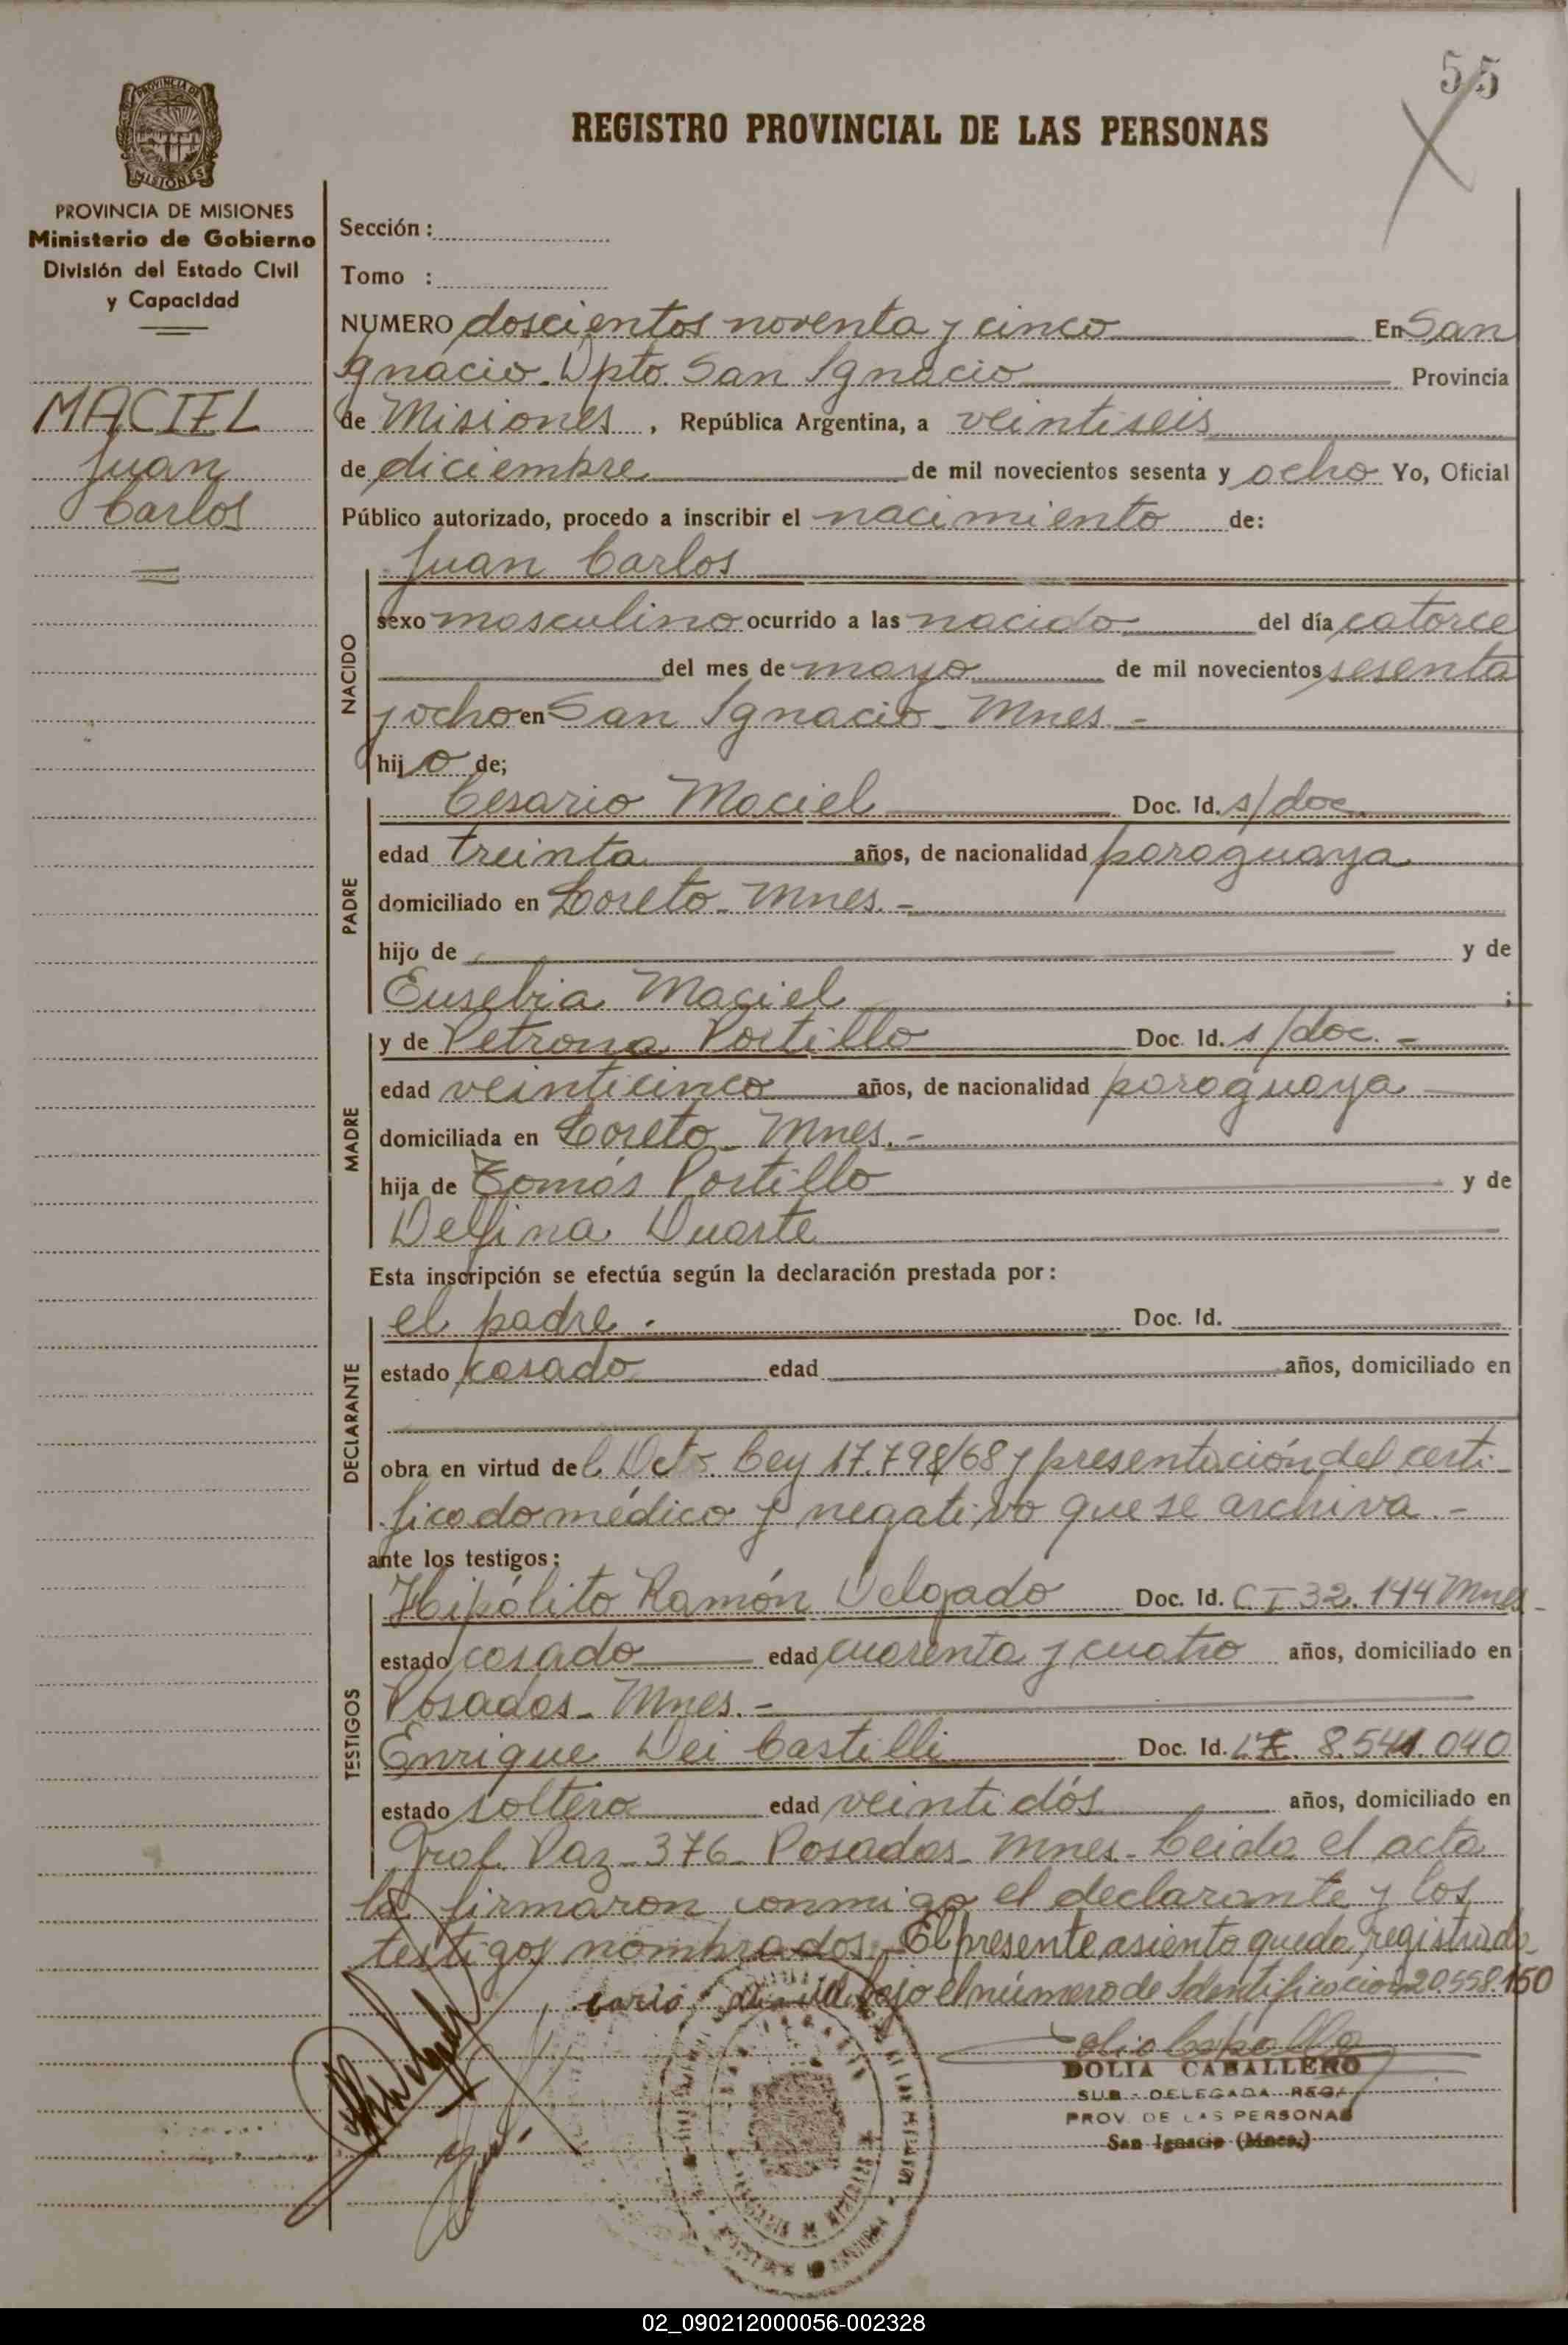 55
PROVINCIA DE
MISIONES
REGISTRO PROVINCIAL DE LAS PERSONAS
PROVINCIA DE MISIONES
Ministerio de Gobierno
División del Estado Civil
y Capacidad
MACIEL
Juan
Carlos
Sección :
Tomo :
NUMERO doscientos noventa y cinco En San
Ignacio. Dpto. San Ignacio Provincia
de Misiones , República Argentina, a veintiseis
de diciembre de mil novecientos sesenta y ocho Yo, Oficial
Público autorizado, procedo a inscribir el nacimiento de:
Juan Carlos
NACIDO
sexo masculino ocurrido a las nacido del día catorce
del mes de mayo de mil novecientos sesenta
y ocho en San Ignacio - Mnes -
hijo de;
PADRE
Cesario Maciel Doc. Id. s/doc.
edad treinta años, de nacionalidad paraguaya
domiciliado en Loreto - Mnes. -
hijo de y de
Eusebia Maciel ;
MADRE
y de Petrona Portillo Doc. Id. s/doc. -
edad veinticinco años, de nacionalidad paraguaya
domiciliada en Loreto - Mnes. -
hija de Tomás Portillo y de
Delfina Duarte
Esta inscripción se efectúa según la declaración prestada por:
DECLARANTE
el padre . Doc. Id.
estado casado edad años, domiciliado en
obra en virtud del Dcto Ley 17.798/68 y presentación del certi-
ficado médico y negativo que se archiva. -
ante los testigos:
TESTIGOS
Hipólito Ramón Delgado Doc. Id. C I 32.144 Mnes -
estado casado edad cuarenta y cuatro años, domiciliado en
Posadas - Mnes. -
Enrique Dei Castelli Doc. Id. 8.541.040
estado soltero edad veintidós años, domiciliado en
Gral. Paz - 376 - Posadas - Mnes - Leida el acta
la firmaron conmigo el declarante y los
testigos nombrados. El presente asiento queda registrado
bajo el número de Identificación 20.558.150
DOLIA CABALLERO
SUB - DELEGADA REG.
PROV. DE LAS PERSONAS
San Ignacio (Mnes.)
02_090212000056-002328